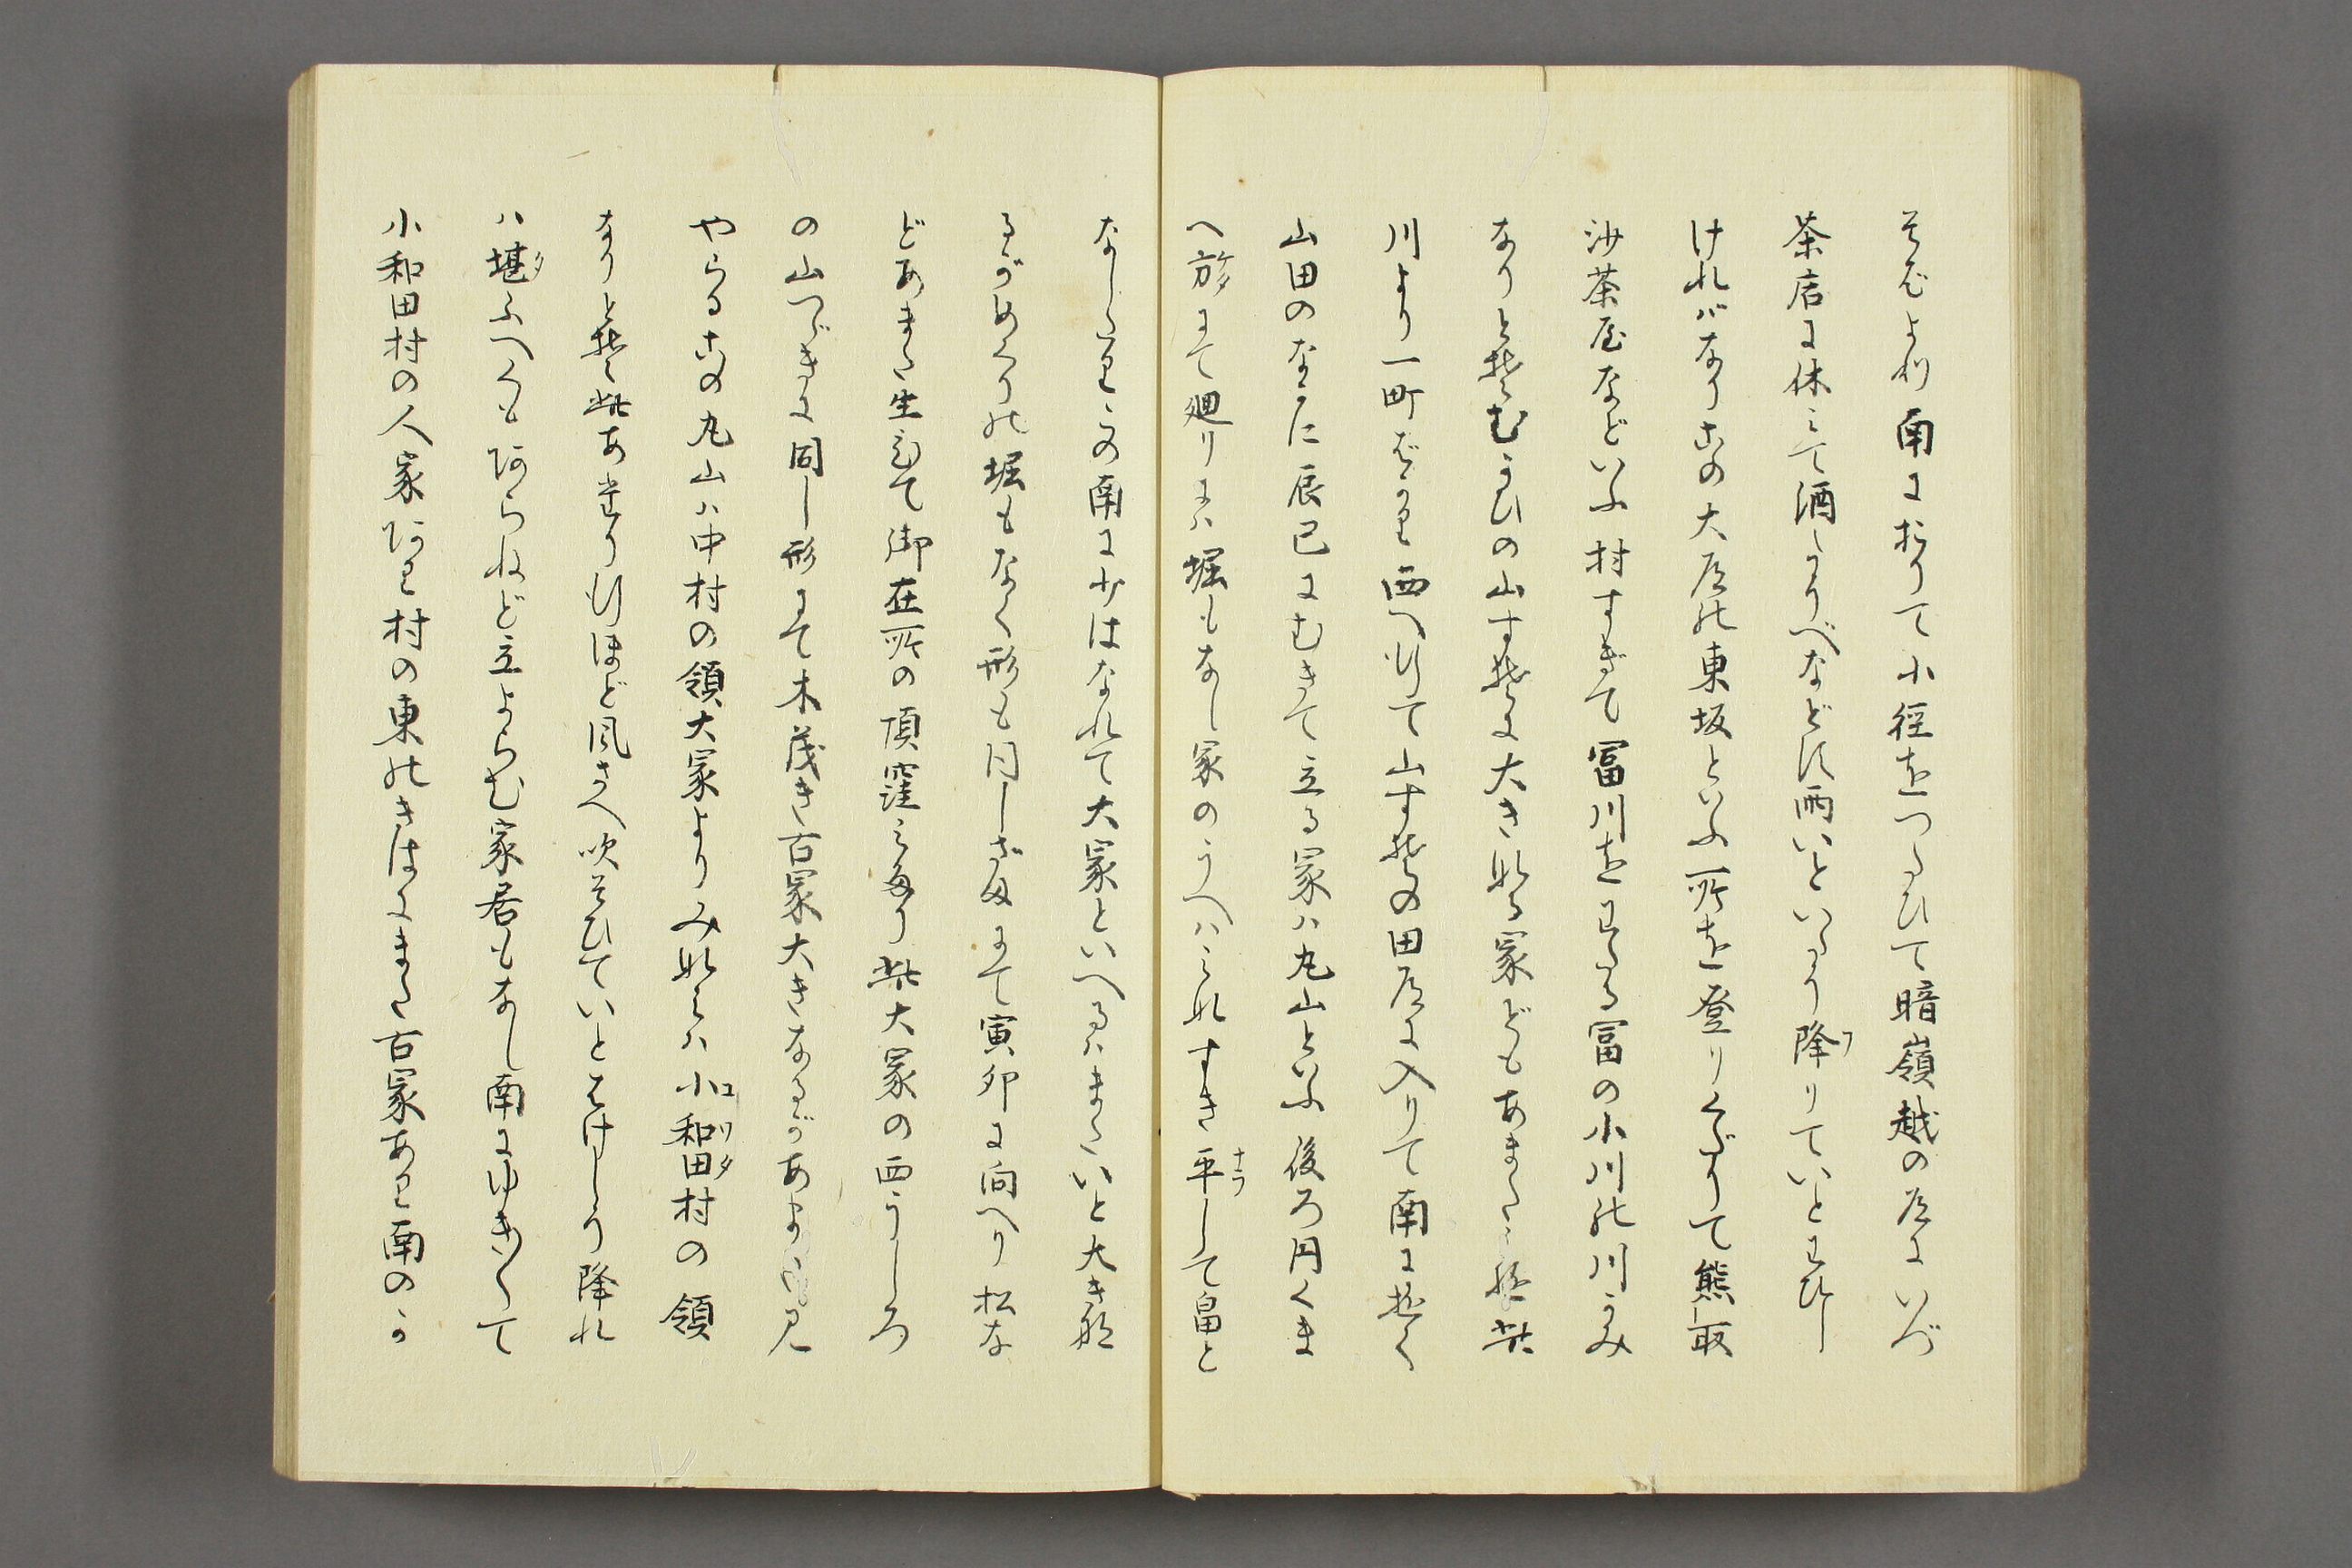 そばより南におりて小径をつたひて暗嶺越の道にいづ
茶店に休みて酒たうべなどす雨いといたう降りていとわびし
けれバなりこの大道の東坂といふ所を登りくだりて熊取
沙茶屋などいふ村すぎて冨川をわたる冨の小川の川かみ
なりとぞむかひの山すそに大きなる冢どもあまたミゆ此
川より一町ばかり西へ行て山すその田道に入りて南に遠く
山田のなかに辰巳にむきて立る冢ハ丸山といふ後ろ円くま
へ方にて廻りにハ堀もなし冢のうへハみなすき平して畠と
なしたりこの南に少はなれて大冢といへるハまたいと大き那
るがめぐりの堀もなく形も同しさまにて寅卯に向へり松な
どあまた生たちて御在所の頂窪みたり此大冢の西うしろ
の山つづきに同し形にて木茂き古冢大きなるがあまた見
やらるこの丸山ハ中村の領大冢よりみなみハ小和田村の領
なりとぞ此あたり行ほど風さへ吹そひていとはげしう降れ
ハ堪ふべくもあらねど立よらむ家居もなし南にゆき〱て
小和田村の人家あり村の東のきはにまた古冢あり南のか